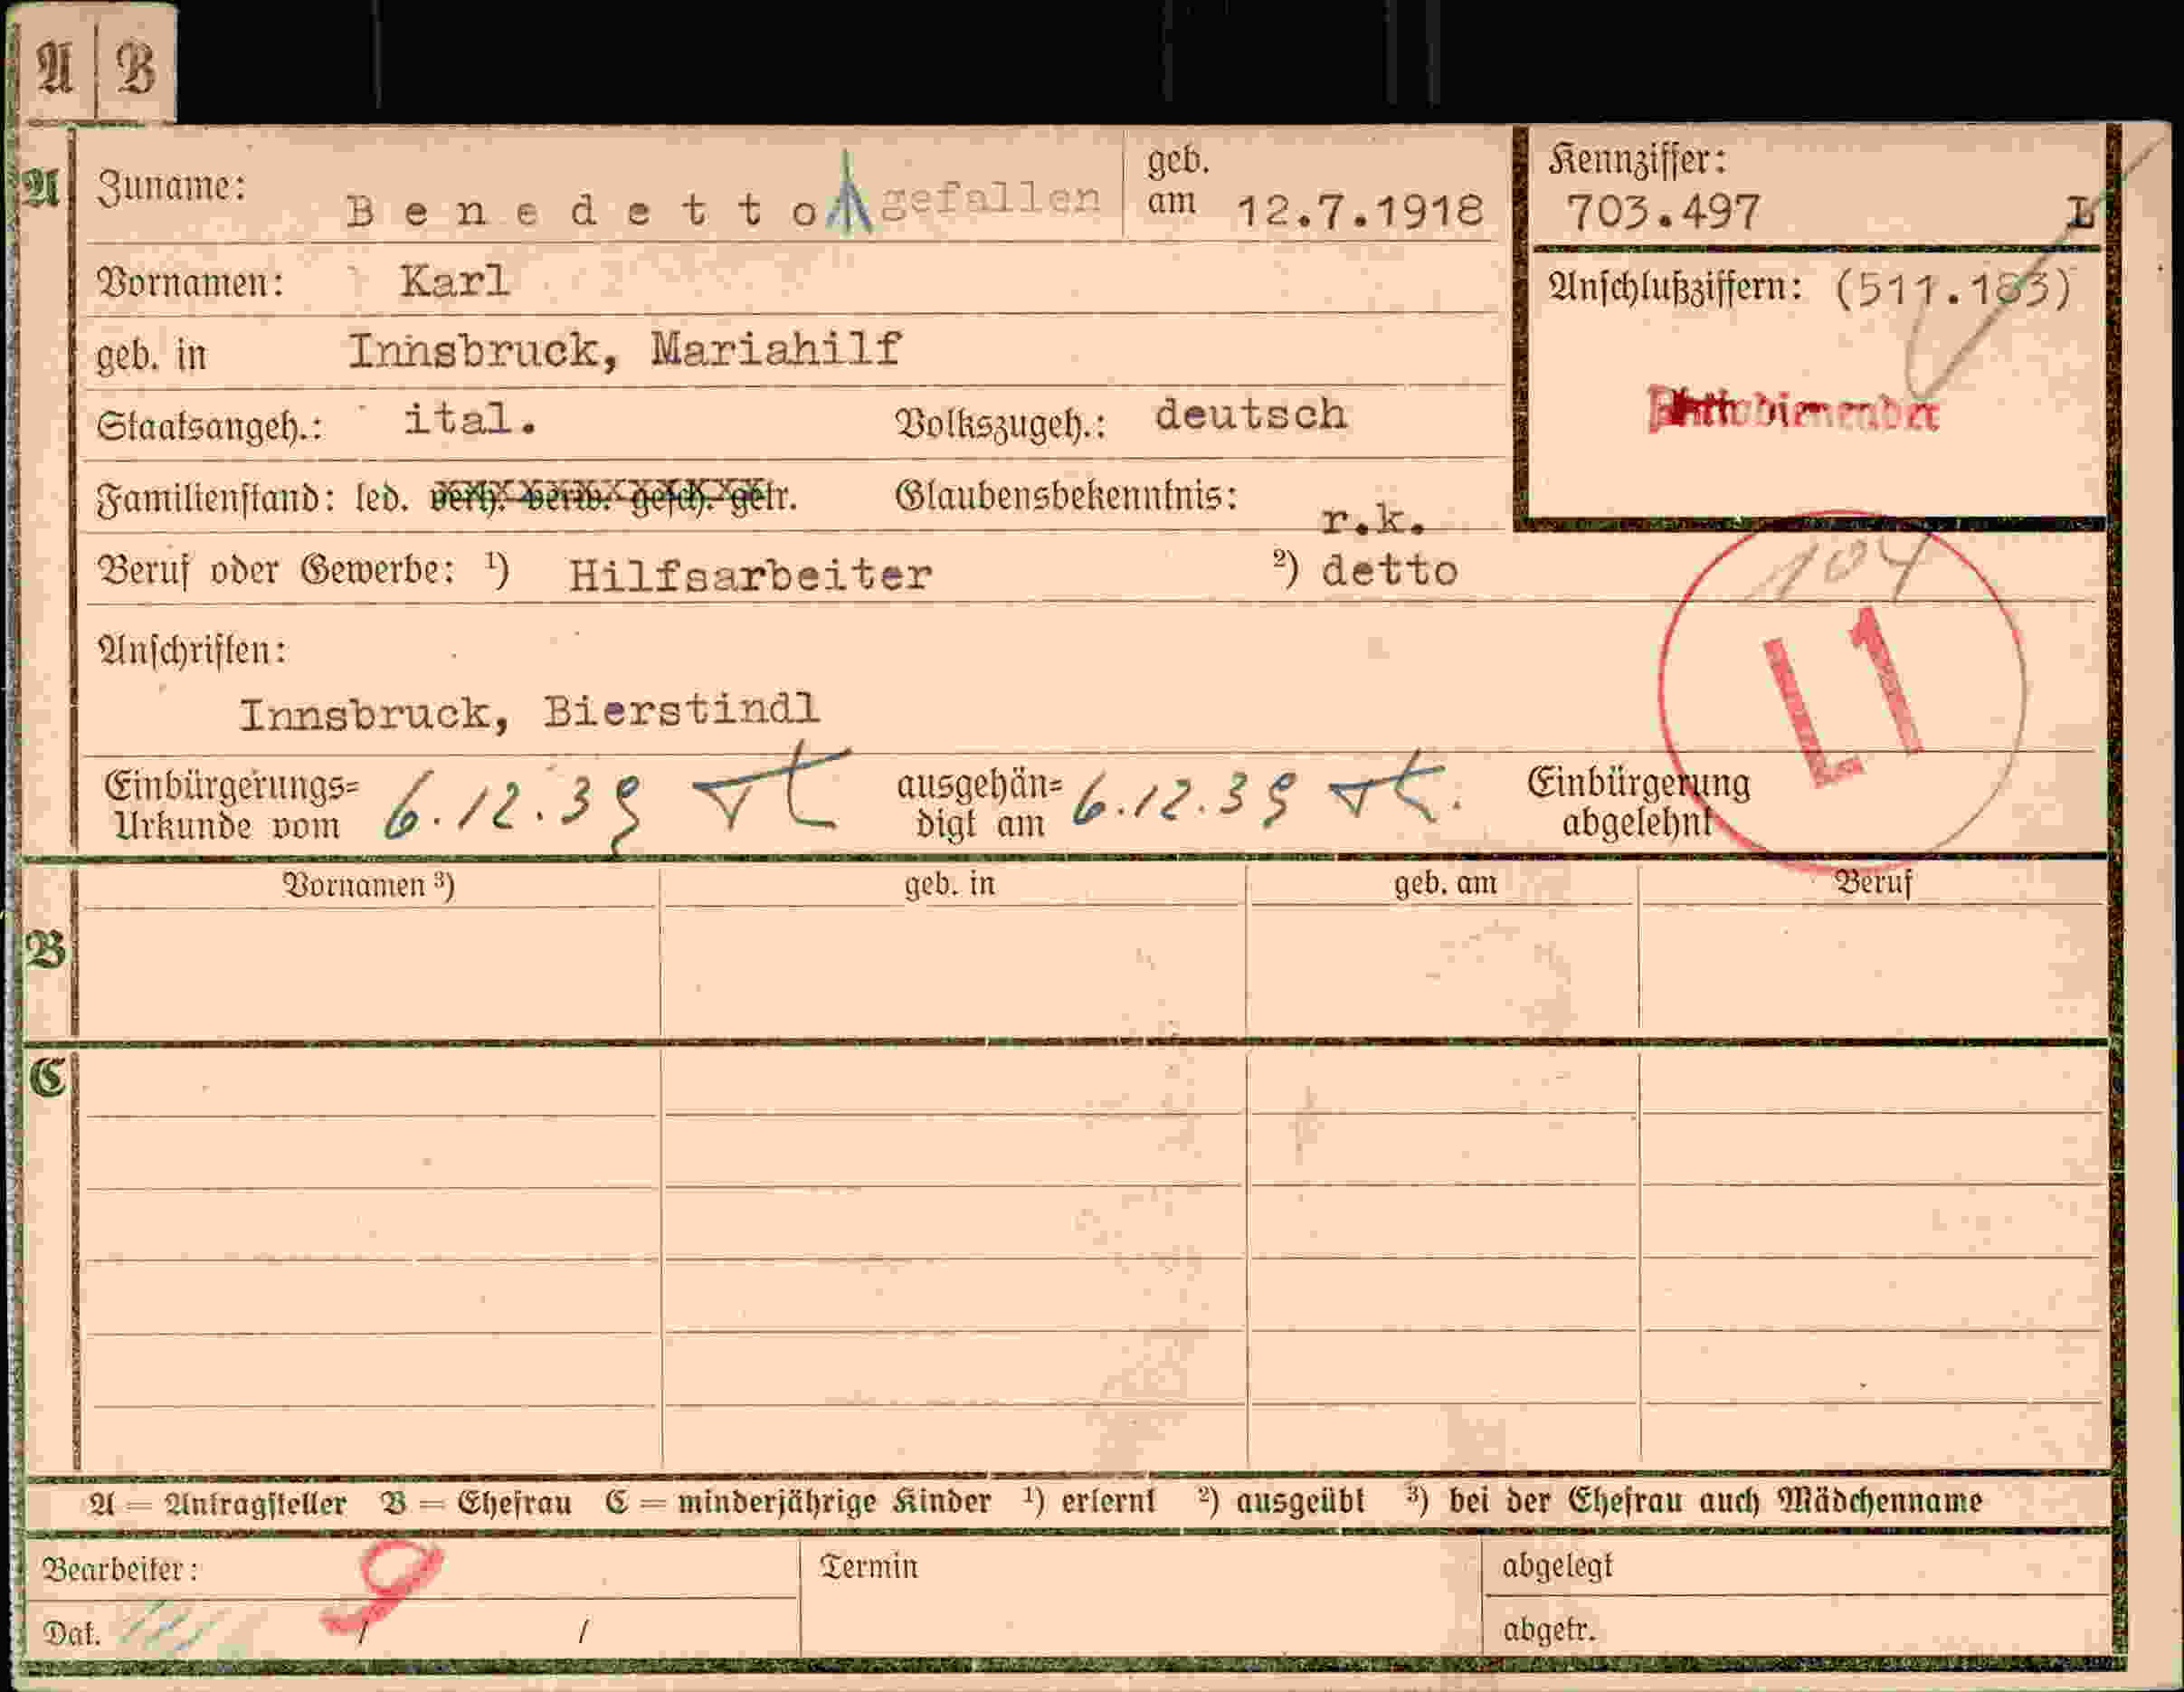 A B
A Zuname: Benedetto gefallen geb. am 12.7.1918
Kennziffer: 703.497 L
Vornamen: Karl
Anschlußziffern: (511.183)
geb. in Innsbruck, Mariahilf
Staatsangeh.: ital. Volkszugeh.: deutsch
Familienstand: led. verh. verw. gesch. getr. Glaubensbekenntnis: r.k.
Beruf oder Gewerbe: ¹) Hilfsarbeiter ²) detto
104
L1
Anschriften:
Innsbruck, Bierstindl
Einbürgerungs=
Urkunde vom 6.12.39
ausgehän=
digt am 6.12.39
Einbürgerung
abgelehnt
B Vornamen ³) geb. in geb. am Beruf
C
A = Antragsteller B = Ehefrau C = minderjährige Kinder ¹) erlernt ²) ausgeübt ³) bei der Ehefrau auch Mädchenname
Bearbeiter: 9 Termin abgelegt
Dat. / / abgetr.